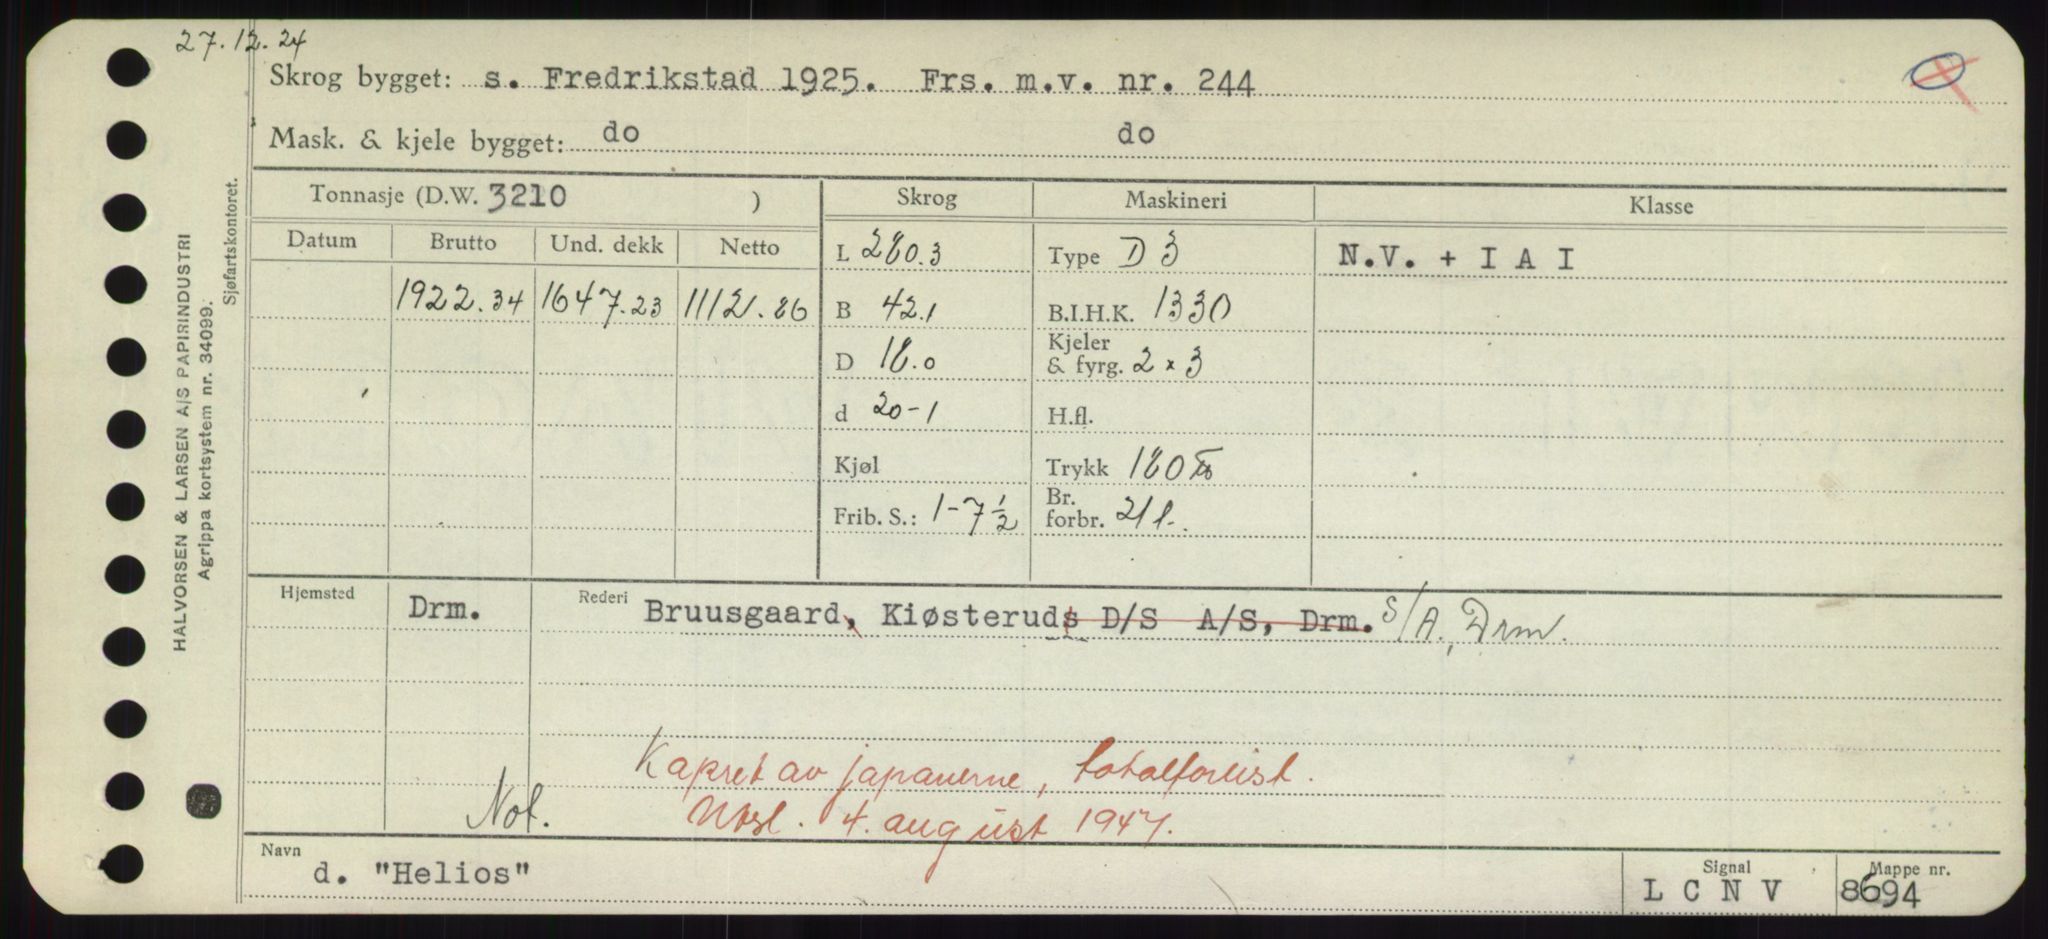 27.12.24
Skrog bygget: s. Fredrikstad 1925. Frs. m.v. nr. 244
Mask. & kjele bygget: do do
HALVORSEN & LARSEN A/S PAPIRINDUSTRI
Agrippa kortsystem nr. 34099.
Sjøfartskontoret.
Tonnasje (D.W. 3210 ) Skrog Maskineri Klasse
Datum Brutto Und. dekk Netto
L 280.3 Type D 3 N.V. + I A I
1922.34 1647.23 1112.86 B 42.1 B.I.H.K. 1330
D 18.0 Kjeler & fyrg. 2 x 3
d 20-1 H.fl.
Kjøl Trykk 180
Frib. S.: 1-7½ Br. forbr. 21 t.
Hjemsted Drm. Rederi Bruusgaard, Kiøsteruds D/S A/S, Drm. S/A, Drm.
Kapret av japanerne, totalforlist.
Not. Nbsl. 4. august 1947.
Navn d. "Helios" Signal L C N V Mappe nr. 8694